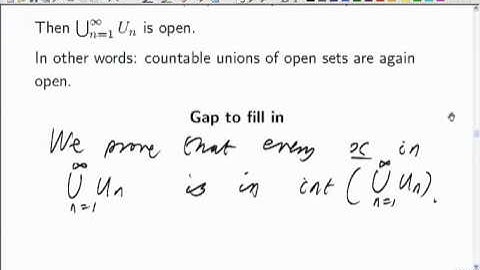 Then ⋃_{n=1}^{∞} U_n is open.
In other words: countable unions of open sets are again
open.
Gap to fill in
We prove that every x in
⋃_{n=1}^{∞} U_n is in int (⋃_{n=1}^{∞} U_n).